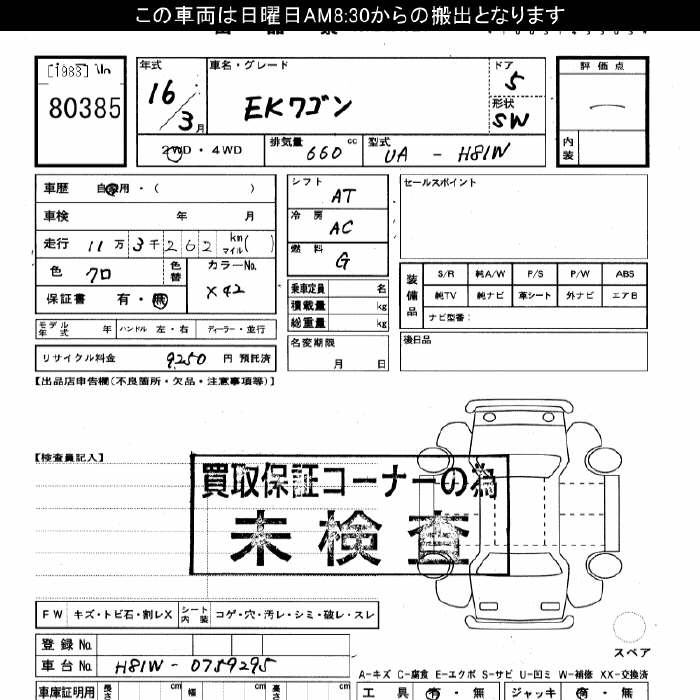 この車両は日曜日AM8:30からの搬出となります
[1983]
80385
年式 車名・グレード ドア 評価点
16/3月 EKワゴン 5
形状 SW
2WD・4WD 排気量 660 cc 型式 UA - H81W 内装
車歴 自家用・( )
車検 年 月
走行 11万3千262 km マイル( )
色 クロ 色替 カラーNo. X42
保証書 有・無
シフト AT
冷房 AC
燃料 G
乗車定員 名
積載量 kg
総重量 kg
名変期限
月 日
セールスポイント
装備品 S/R 純A/W P/S P/W ABS
純TV 純ナビ 革シート 外ナビ エアB
ナビ型番:
後日品
モデル年式 年 ハンドル 左・右 ディーラー・並行
リサイクル料金 9250 円 預託済
【出品店申告欄(不良箇所・欠品・注意事項等)】
【検査員記入】
買取保証コーナーの為
未検査
FW キズ・トビ石・割レX シート内装 コゲ・穴・汚レ・シミ・破レ・スレ
スペア
登録No.
車台No. H81W - 0759295
A-キズ C-腐食 E-エクボ S-サビ U-凹ミ W-補修 XX-交換済
車庫証明用 長さ cm 幅 cm 高さ cm 工具 有・無 ジャッキ 有・無